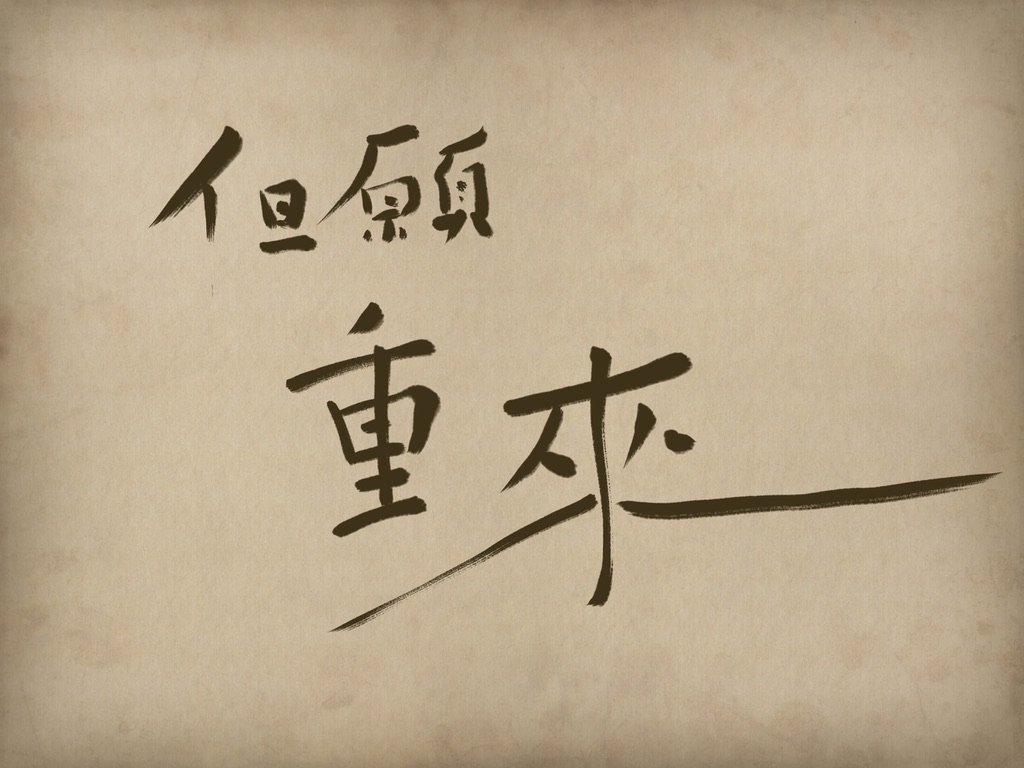 但願
重來